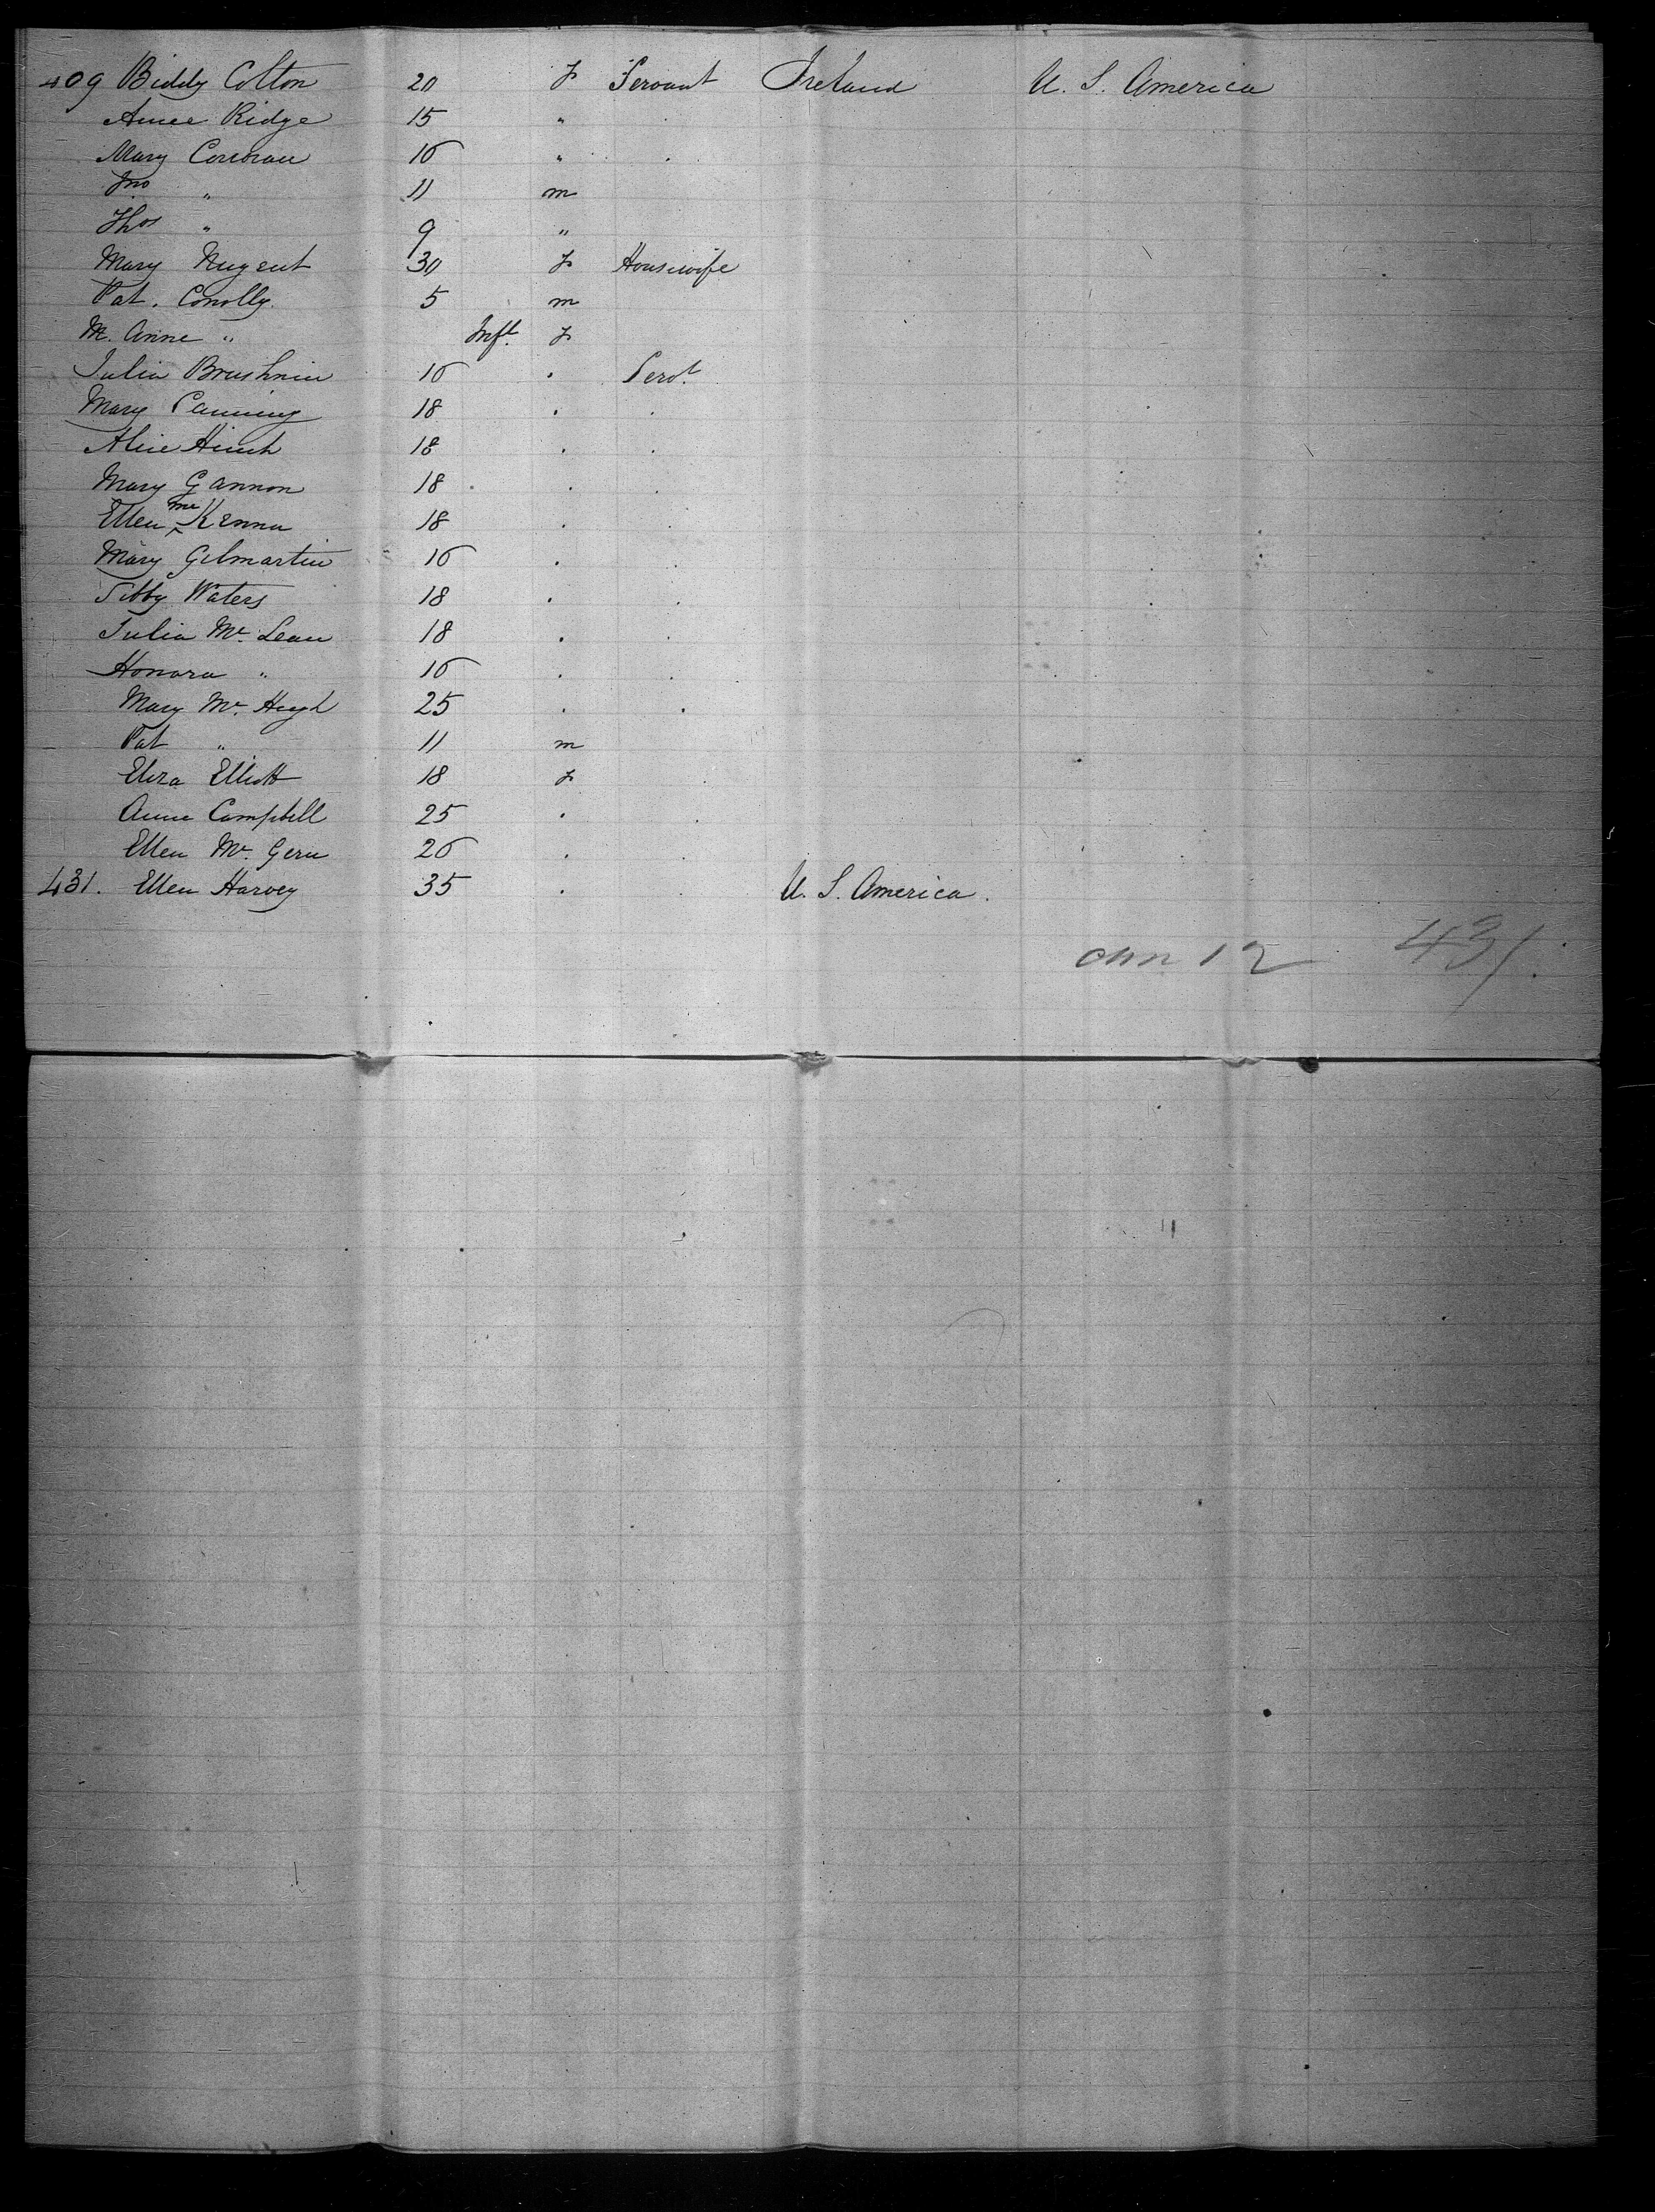 409 Biddy Colton 20 f Servant Ireland U. S. America
Annee Ridge 15 "
Mary Corcoran 16 "
Jno " 11 m
Thos " 9 "
Mary Nugent 30 f Housewife
Pat. Conolly 5 m
M. Anne " Inft. f
Julia 16 . Servt
Mary 18 . .
Alice 18 . .
Mary Gannon 18 . .
Ellen McKenna 18 . .
Mary Gilmartin 16 . .
Sibby Waters 18 . .
Julia Mc. Lean 18 . .
Honora " 16 . .
Mary Mc. Hugh 25 . .
Pat " 11 m
Eliza Elliott 18 f .
Anne Campbell 25 . .
Ellen Mc. Gern 26 . .
431. Ellen Harvey 35 . . U. S. America.
12 431.